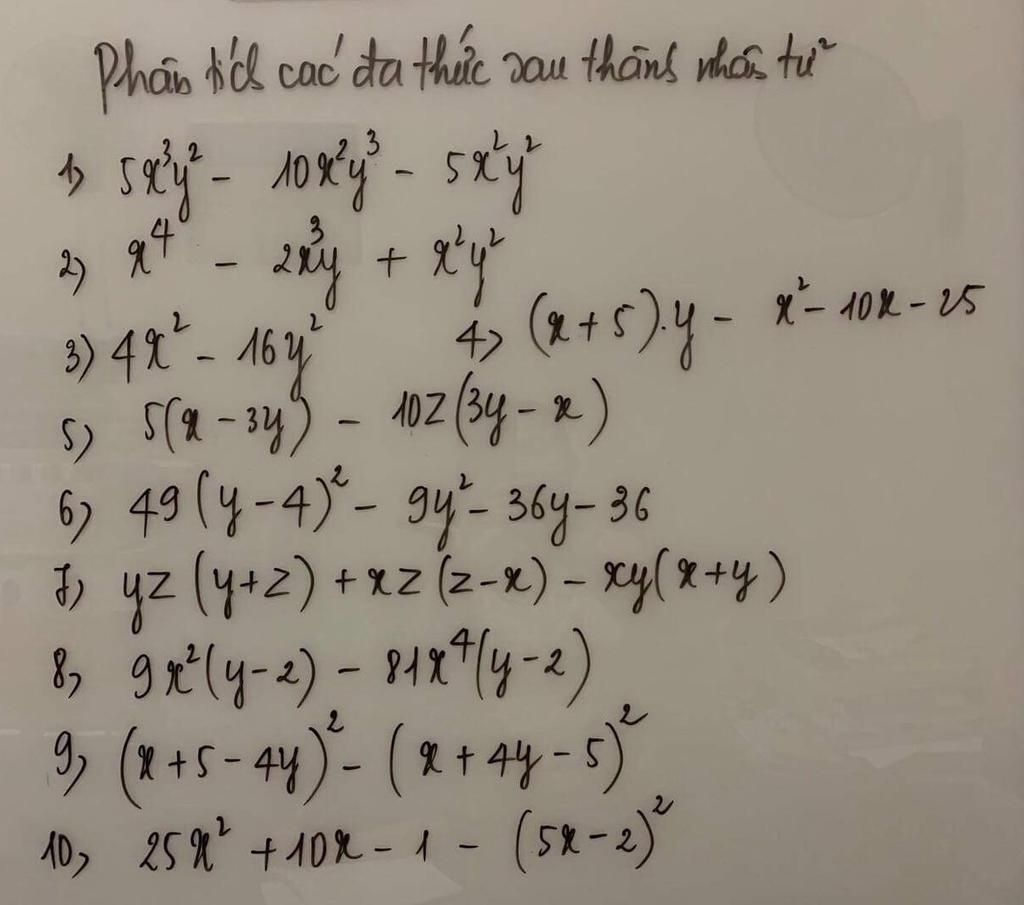 Phân tích các đa thức sau thành nhân tử
1) 5x³y² - 10x²y³ - 5x²y²
2) x⁴ - 2x³y + x²y²
3) 4x² - 16y² 4) (x+5).y - x² - 10x - 25
5) 5(x - 3y) - 10z(3y - x)
6) 49(y-4)² - 9y² - 36y - 36
7) yz(y+z) + xz(z-x) - xy(x+y)
8) 9x²(y-2) - 81x⁴(y-2)
9) (x+5-4y)² - (x+4y-5)²
10) 25x² + 10x - 1 - (5x-2)²